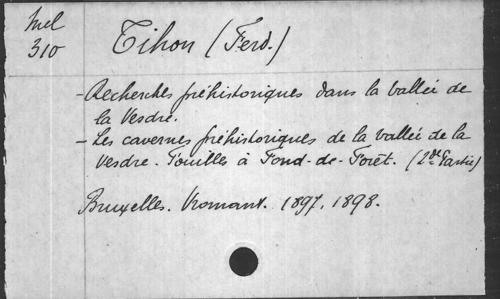 Mel
310
Tihon (Ferd.)
- Recherches préhistoriques dans la vallée de
la Vesdre.
- Les cavernes préhistoriques de la vallée de la
Vesdre. Fouilles à Fond-de-Forêt. (2de Partie)
Bruxelles. Vromant. 1897, 1898.